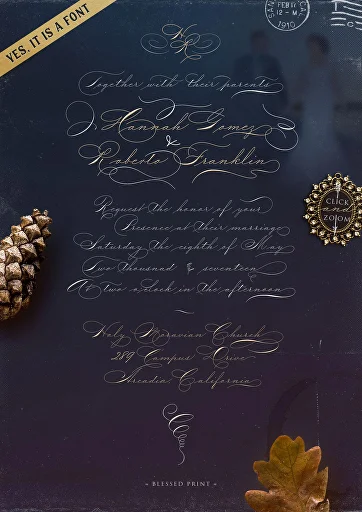 YES, IT IS A FONT
SAN
CAL
FEB 17
12 - M
1910
H
R
Together with their parents
Hannah Gomez
&
Roberto Franklin
Request the honor of your
Presence at their marriage
Saturday the eighth of May
Two thousand & seventeen
At two o.clock in the afternoon
CLICK
and
ZOOM
Holy Moravian Church
289 Campus Drive
Arcadia California
~ BLESSED PRINT ~